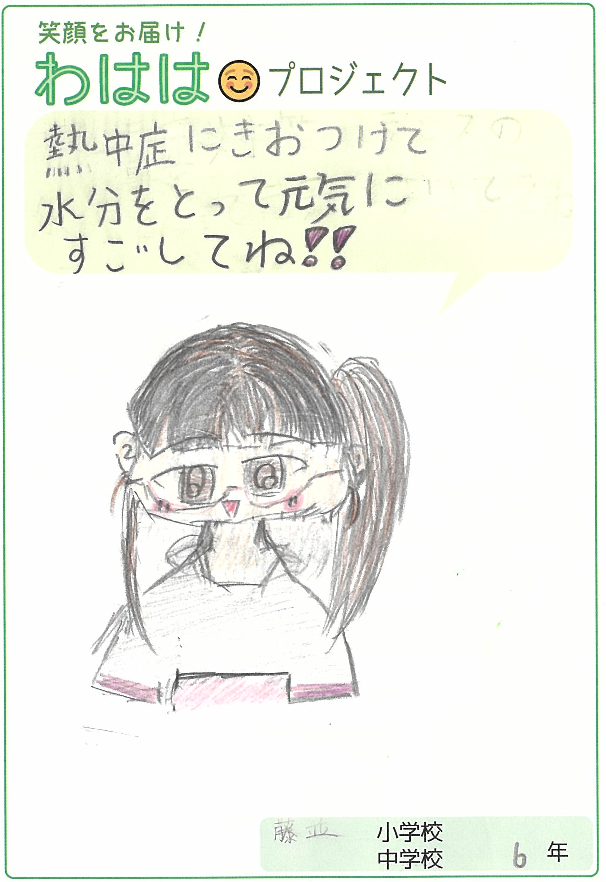 笑顔をお届け！
わははプロジェクト
熱中症にきおつけて
水分をとって元気に
すごしてね!!
藤並 小学校
中学校 6 年